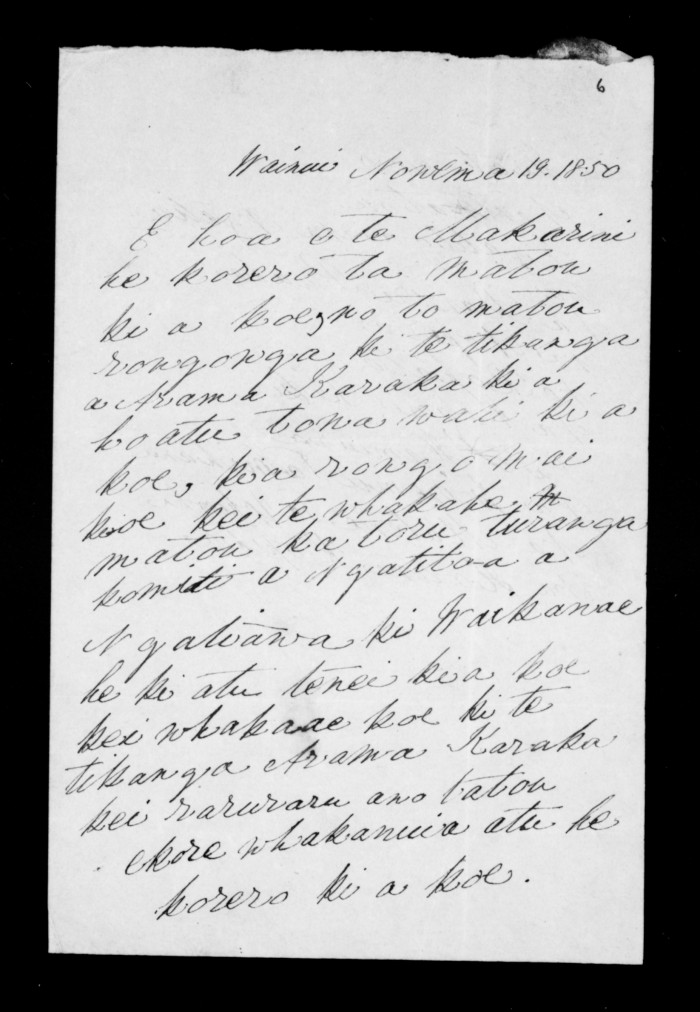 6
Wainui Nowema 19. 1850
E hoa e te Makarini
he korero ta matou
ki a koe, no to matou
rongonga ki te tikanga
a Arama Karaka ki a
hoatu tona wahi ki a
koe, kia rongo mai
koe kei te whakahe
matou ka toru turanga
komiti a Ngatitoa a
Ngatiawa ki Waikanae
he ki atu tenei kia koe
kei whakaae koe ki te
tikanga Arama Karaka
kei raruraru ano tatou
ekore whakanuia atu he
korero ki a koe.